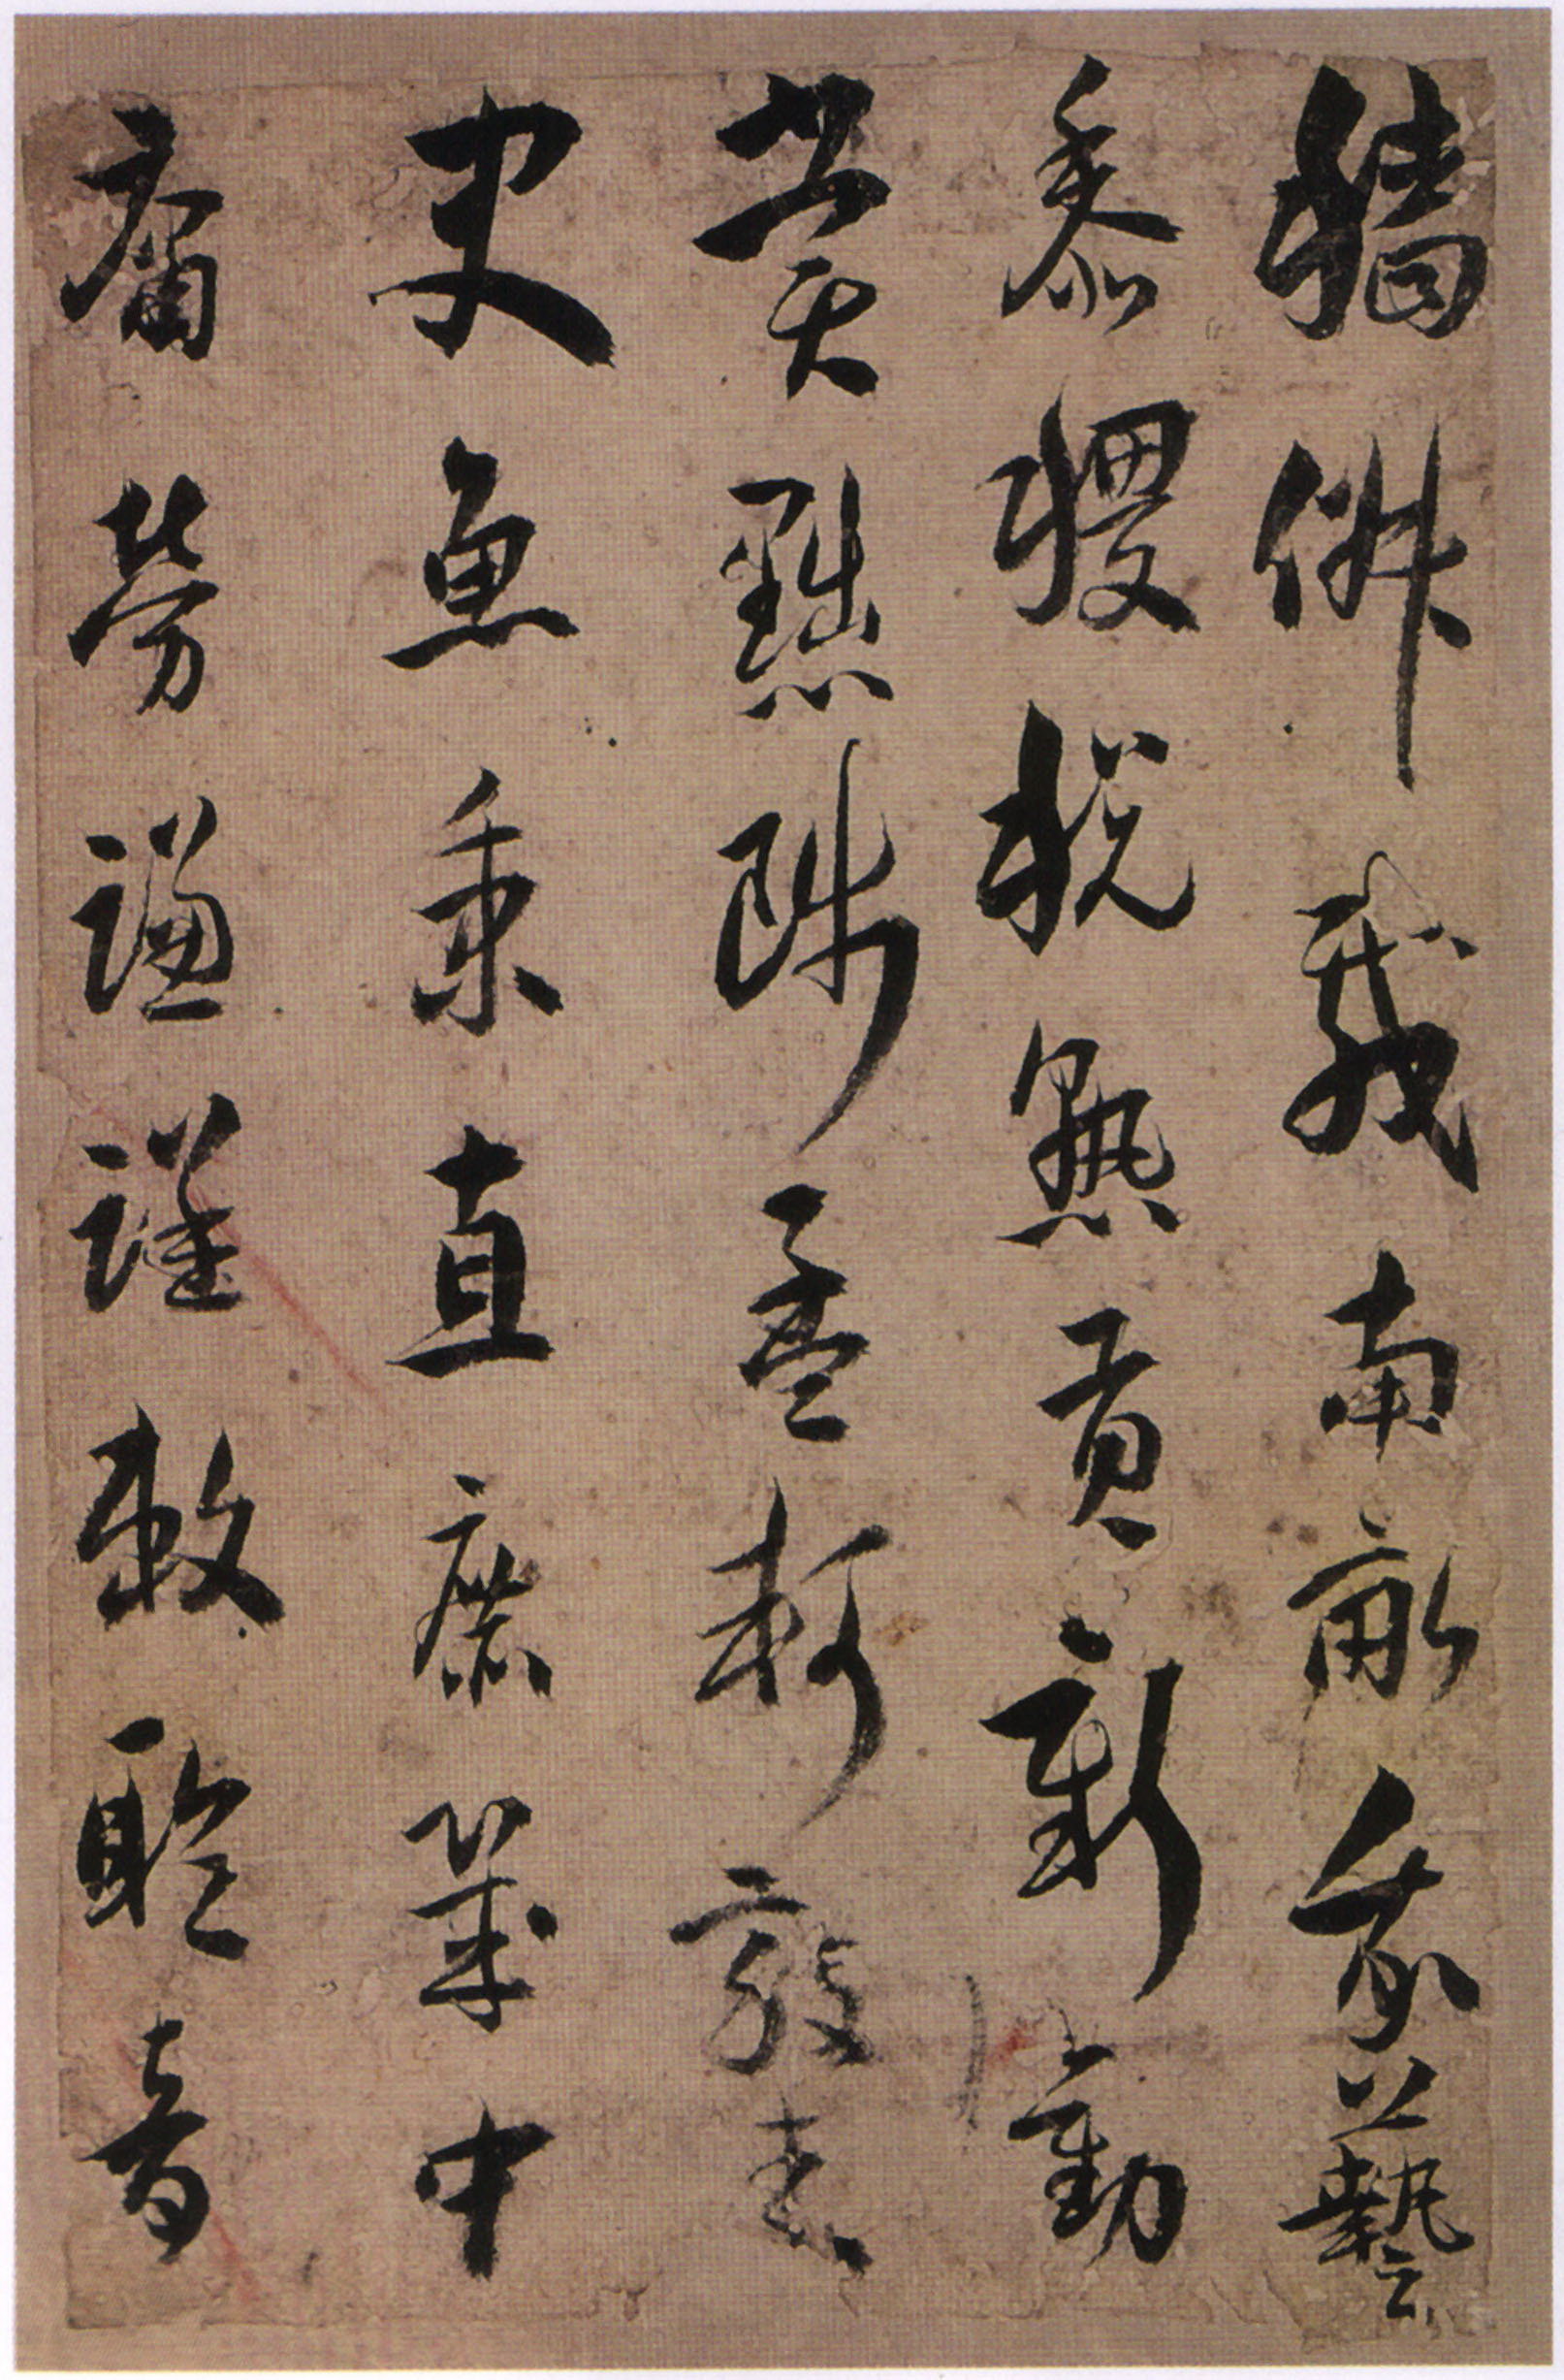 穡俶載南畝我藝
黍稷稅熟貢新勸
賞黜陟孟軻敦素
史魚秉直庶幾中
庸勞謙謹敕聆音